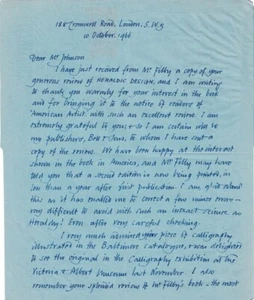 188 Cromwell Road, London. S.W.5
10 October, 1966
Dear Mr Johnson
I have just received from Mr Filby a copy of your
generous review of HERALDIC DESIGN, and I am writing
to thank you warmly for your interest in the book
and for bringing it to the notice of readers of
'American Artist' with such an excellent review. I am
extremely grateful to you; & so I am certain will be
my publishers, to whom I have sent a
copy of the review. We have been happy at the interest
shown in the book in America, and Mr Filby may have
told you that a second edition is now being printed, in
less than a year after first publication. I am glad
this as it has enabled me to correct a few minor errors -
very difficult to avoid with such an exact science as
Heraldry! Even after very careful checking.
I very much admired your piece of calligraphy
illustrated in the Baltimore Catalogue, & was delighted
to see the original in the Calligraphy exhibition at the
Victoria & Albert Museum last November. I also
remember your splendid review of Mr Filby's book - the most